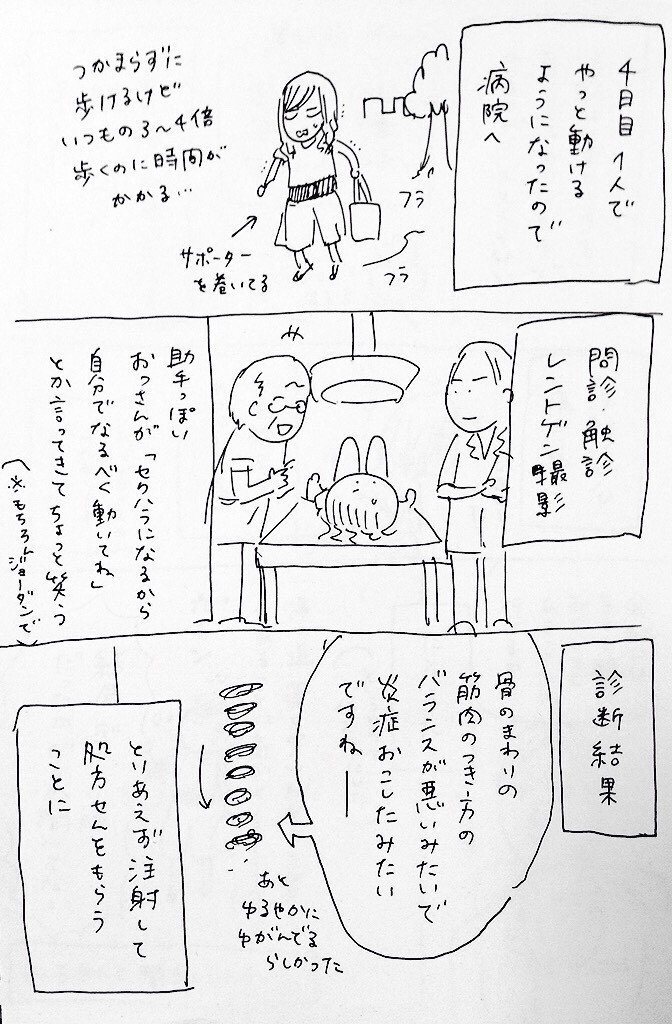 4日目 1人で
やっと動ける
ようになったので
病院へ
フラ
フラ
つかまらずに
歩けるけど
いつもの3〜4倍
歩くのに時間が
かかる…
サポーター
を巻いてる
問診・触診
レントゲン撮影
助手っぽい
おっさんが「セクハラになるから
自分でなるべく動いてね」
とか言ってきてちょっと笑う
(※もちろんジョーダンで)
診断結果
骨のまわりの
筋肉のつき方の
バランスが悪いみたいで
炎症おこしたみたい
ですねー
あと
ゆるやかに
ゆがんでる
らしかった
とりあえず注射して
処方せんをもらう
ことに